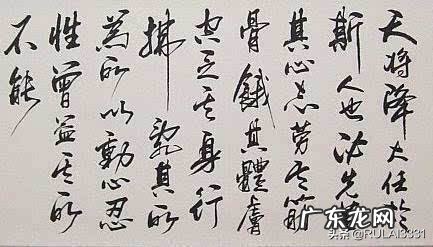 天将降大任於
斯人也必先苦
其心志劳其筋
骨餓其體膚
空乏其身行
拂亂其所
為所以動心忍
性曾益其所
不能
广东龙网
头条 @RULAI3331